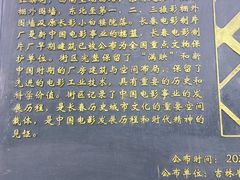 棚外围墙，
外围墙及原长影小白楼院落。长春电影制片
厂是新中国电影事业的摇篮，长春电影制
片厂早期建筑已被公布为全国重点文物保
护单位。街区完整保留了“满映”和新
中国时期的厂房建筑与空间布局，保留了
先进的电影工业技术，具有重要的历史和
科学价值。街区记录了中国电影事业的发
展历程，是长春历史城市文化的重要空间
载体，是中国电影发展历程和时代精神的
见证。
公布时间：202
公布单位：吉林